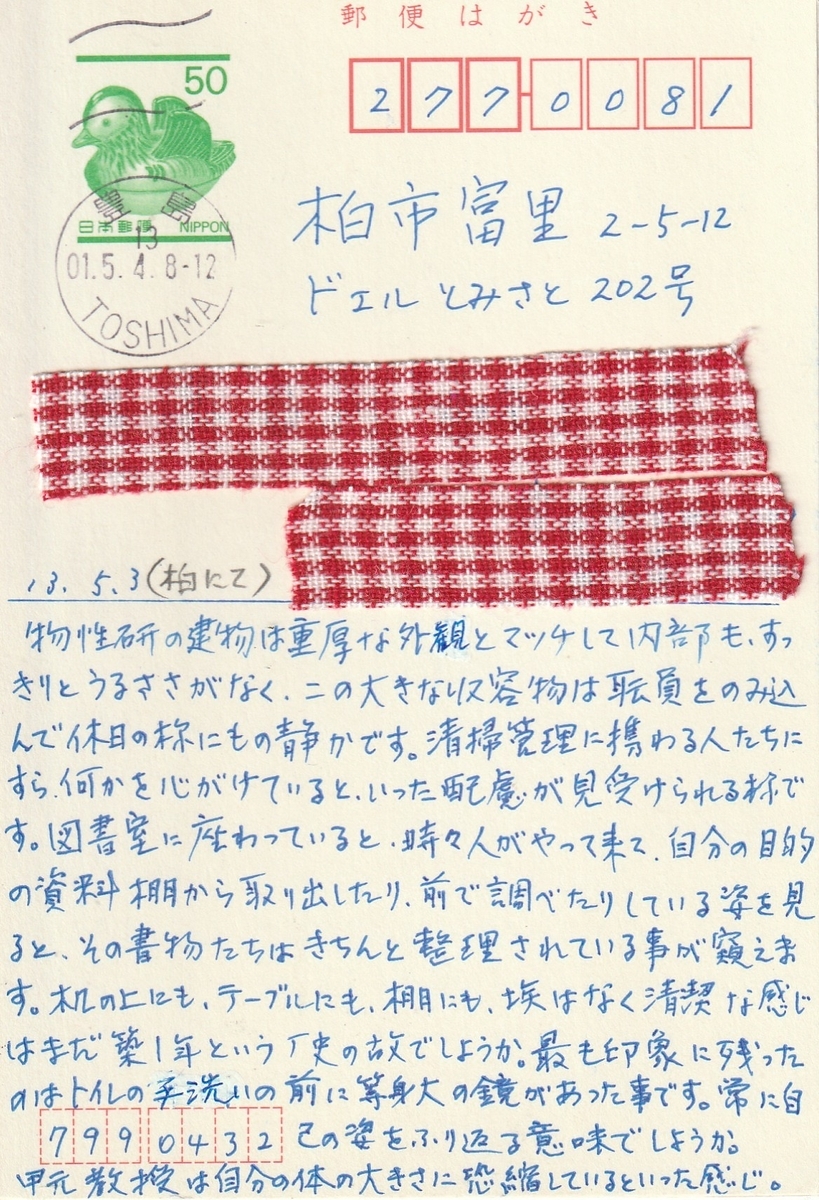 郵便はがき
50
277-0081
日本郵便 NIPPON
豊島
13
01.5.4.8-12
TOSHIMA
柏市富里 2-5-12
ドエルとみさと 202号
13.5.3(柏にて)
物性研の建物は重厚な外観とマッチして内部も、すっ
きりとうるささがなく、この大きな収容物は職員をのみ込
んで休日の様にもの静かです。清掃管理に携わる人たちに
すら、何かを心がけていると、いった配慮が見受けられる様で
す。図書室に座わっていると、時々人がやって来て、自分の目的
の資料棚から取り出したり、前で調べたりしている姿を見
ると、その書物たちはきちんと整理されている事が窺えま
す。机の上にも、テーブルにも、棚にも、埃はなく清潔な感じ
はまだ築1年という歴史の故でしょうか。最も印象に残った
のはトイレの手洗いの前に等身大の鏡があった事です。常に自
7990432 己の姿をふり返る意味でしょうか。
甲元教授は自分の体の大きさに恐縮しているといった感じ。